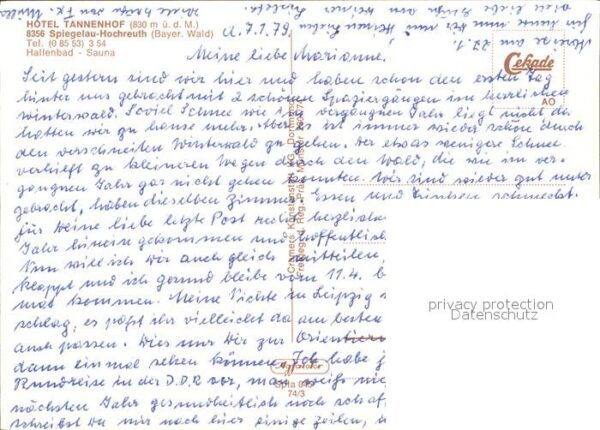 HOTEL TANNENHOF (830 m ü. d. M.)
8356 Spiegelau-Hochreuth (Bayer. Wald)
Tel. (0 85 53) 3 54
Hallenbad - Sauna
d. 7.1.79
Cekade
AO
Meine liebe Marianne.
Seit gestern sind wir hier und haben schon den ersten Tag
hinter uns gebracht mit 2 schönen Spaziergängen im herrlichen
Winterwald. Soviel Schnee wie im vergangnen Jahr liegt nicht da
hatten wir zu hause mehr. Aber es ist immer wieder schön durch
den verschneiten Winterwald zu gehen. Der etwas wenigere Schnee
verhilft zu kleineren Wegen durch den Wald, die wir im ver-
gangnen Jahr gar nicht gehen konnten. Wir sind wieder gut unter
gebracht, haben dieselben Zimmer. Essen und Trinken schmeckt.
für Deine liebe letzte Post recht herzlich
Jahr hinein gekommen und hoffentlich
Nun will ich Dir auch gleich mitteilen,
klappt und ich gesund bleibe vom 11.4. b
mal kommen. Meine Nichte in Leipzig
schlag, es paßt ihr vielleicht da am besten
auch passen. Dies nur Dir zur Orientier
dann einmal sehen können. Ich habe
Rundreise in der D.D.R vor, man weiß nie
nächsten Jahr gesundheitlich noch schaf
schreibst Du mir noch hier einige Zeilen,
Cramers Kunstanstalt KG, Dortmund
Spla 049
74/3
privacy protection
Datenschutz